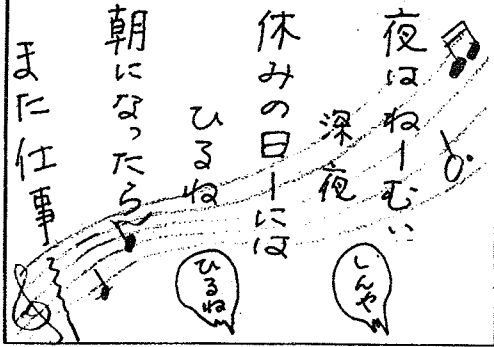 夜はねーむい
深夜
しんや
休みの日ーには
ひるね
ひるね
朝になったら〜
また仕事